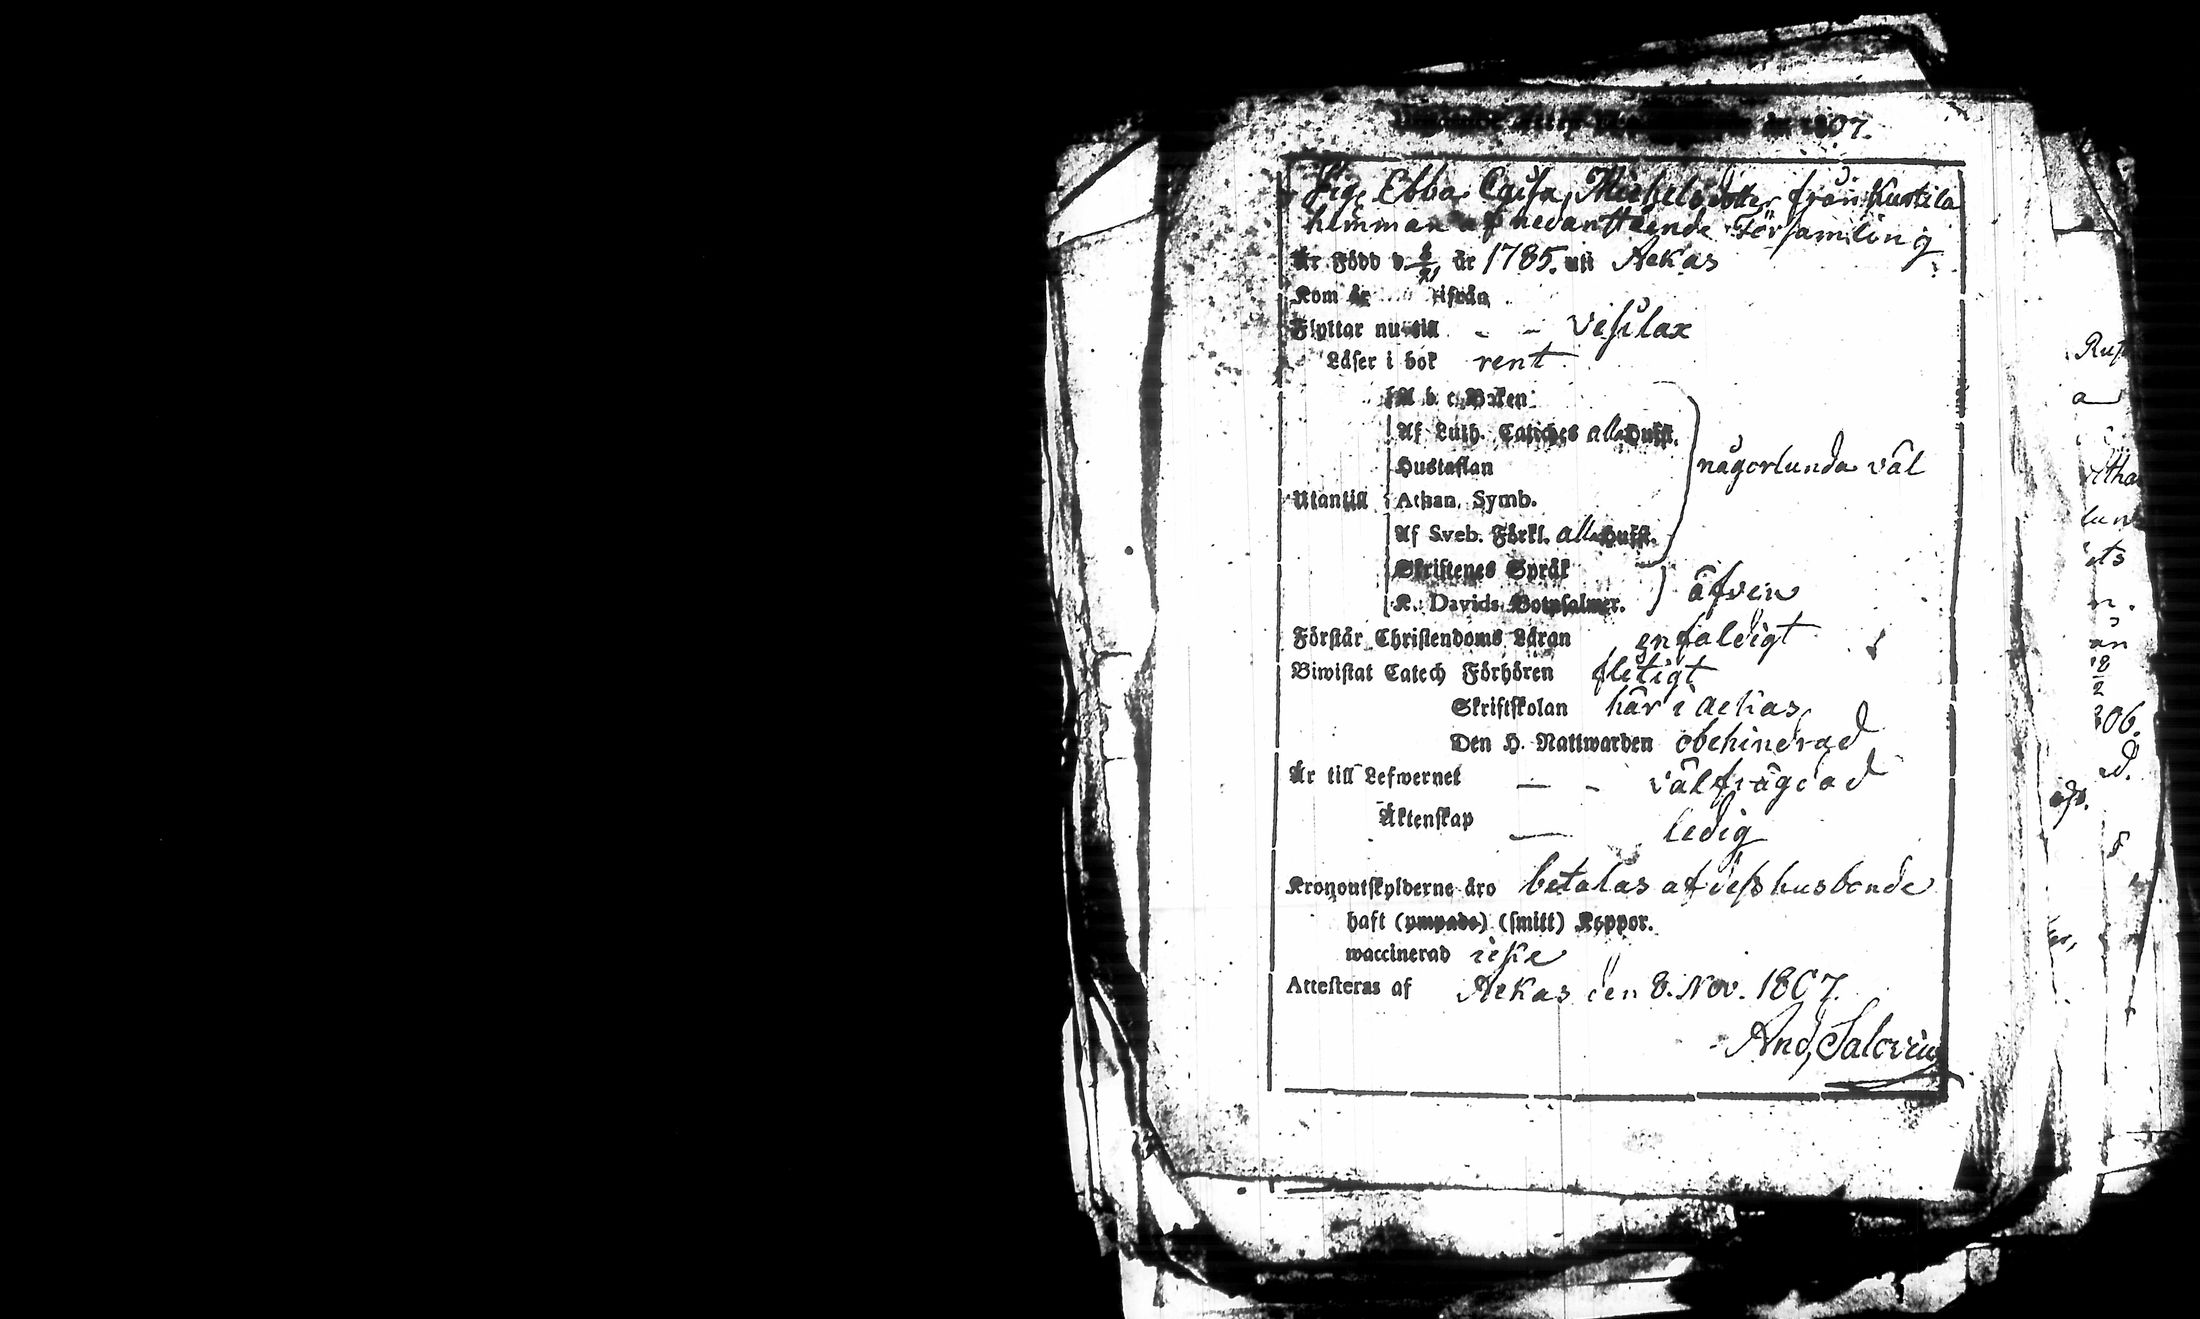 år 1807.
Pig. Ebba Caisa Michelsdotter från Kurtila
hemman af nedanstående Församling
Är Född d. år 1785. uti Aekas
Kom år ifrån
Flyttar nu till - - Vesilax
Läser i bok rent
A b c Boken
Af Luth. Catches alla Hufst.
Hustaflan
någorlunda väl
Utantill Athan. Symb.
Af Sveb. Förkl. alla Hufst.
Skriftenes Språk
K. Davids Botpsalmer. äfven
Förstår Christendoms Läran enfaldigt
Biwistat Catech Förhören flitigt
Skriftskolan här i Aekas
Den H. Nattwarden obehindrad
Är till Lefwernet - - välfrägdad
Äktenskap - ledig
Kronoutskylderne äro betalas af dess husbonde
haft (ympade) (smitt) Koppor.
waccinerad icke
Attesteras af Aekas den 8. Nov. 1807.
And, Salovius
Rus
a
lun
ets
n.
ån
18
2
806.
d.